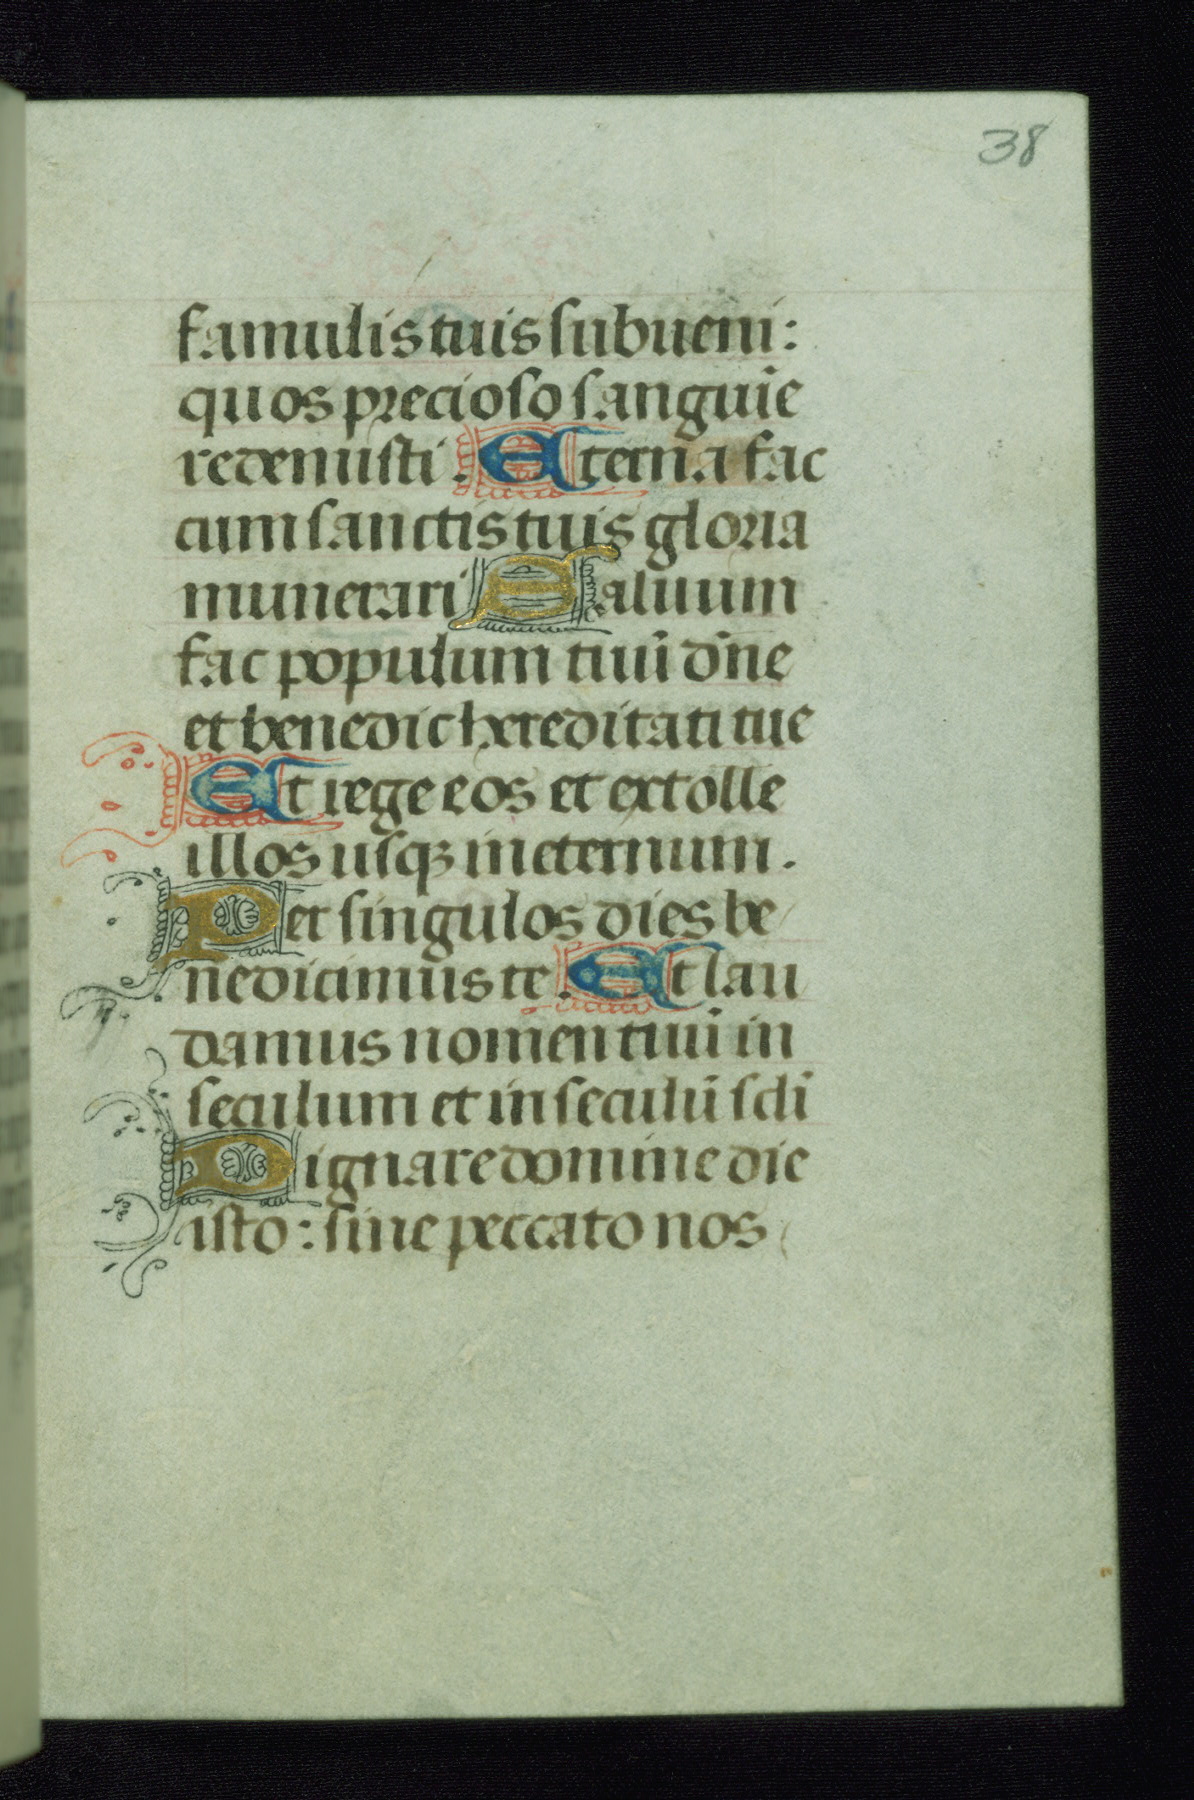 38
famulis tuis subueni:
quos precioso sanguīe
redemisti. Eterna fac
cum sanctis tuis gloria
munerari Saluum
fac populum tuū dn̄e
et benedic hereditati tue
Et rege eos et extolle
illos usqꝫ in eternum.
Per singulos dies be
nedicimus te. Et lau
damus nomen tuū in
seculum et in seculū scl̄i
Dignare domine die
isto: sine peccato nos